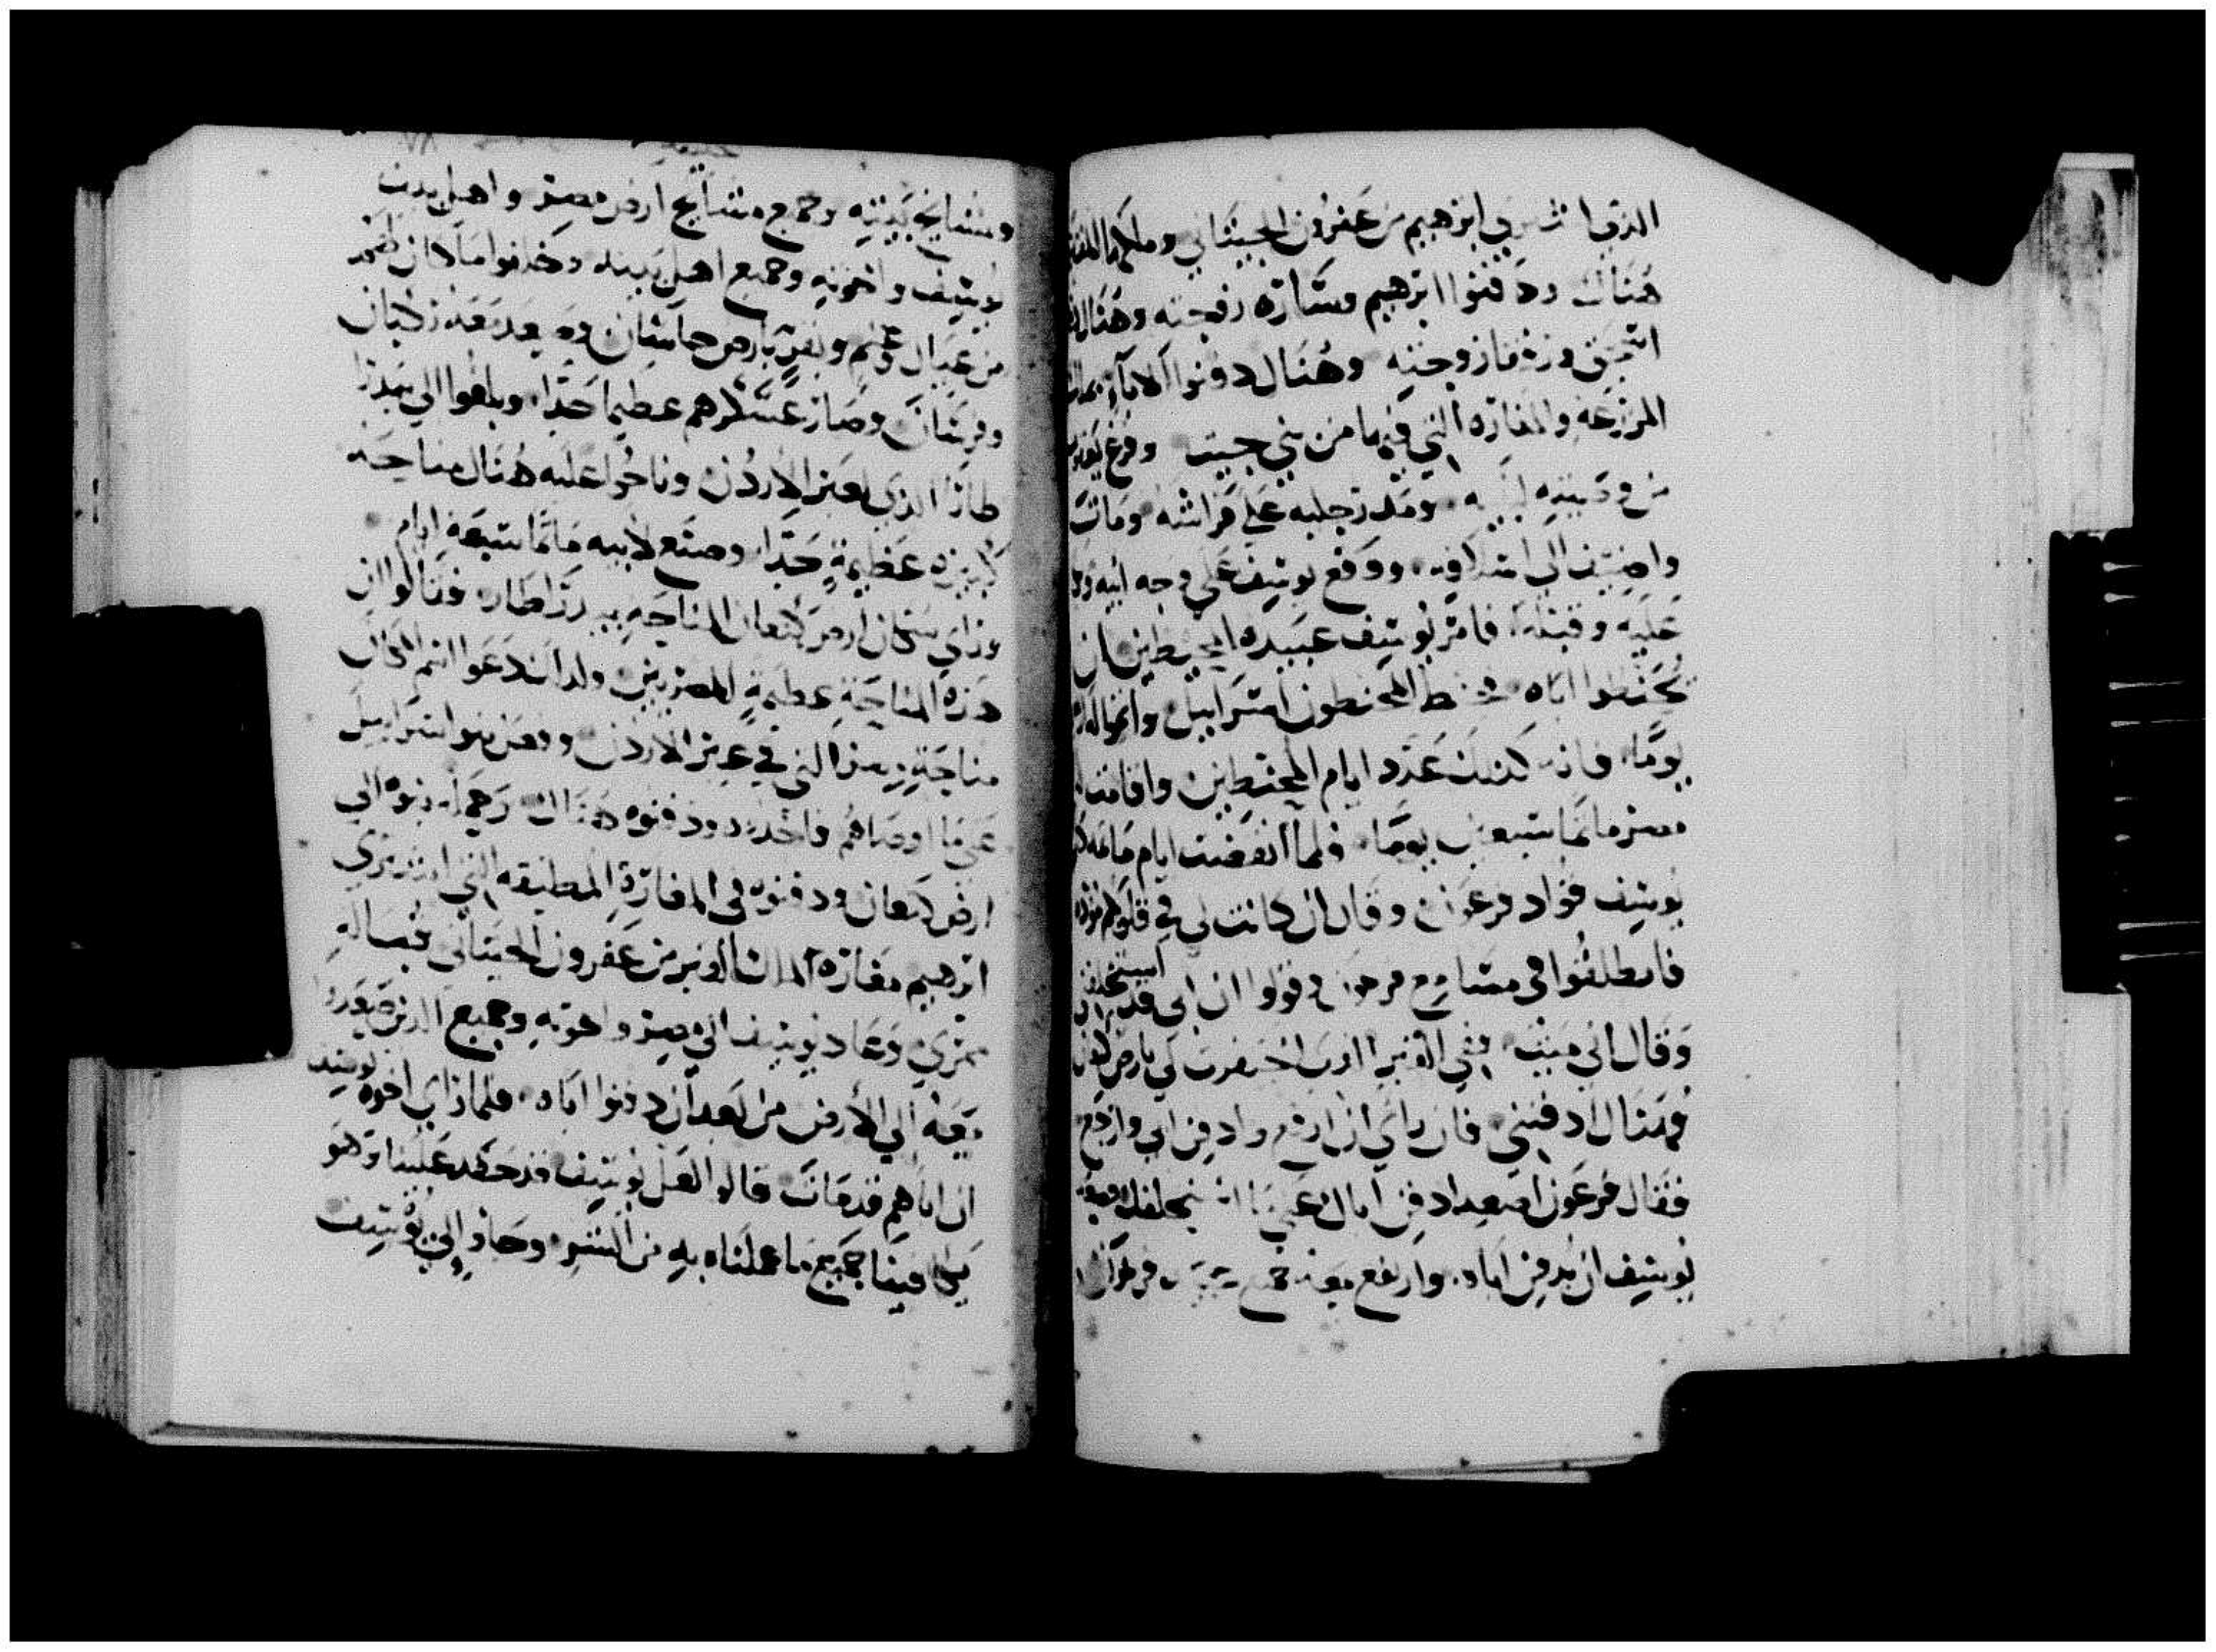 الذي اشتري ابرهيم من عفرون الحيثاني وملكها
هناك ودفنوا ابرهيم وساره زوجته وهناك
اسحق ورفقا زوجته وهناك دفنوا
المزرعه والمغاره التي فيها من بني حيت وفرغ يعقوب
من وصيته لبنيه ومد رجليه علي فراشه ومات
واضيف الي ووقع يوسف علي وجه ابيه
عليه وقبله فامر يوسف عبيده المحنطين ان
يحنطوا اباه فحنط المحنطون اسراييل
يوما فانه كذلك عدد ايام المحنطين واقامت
مصر ماتما سبعين يوما فلما انقضت ايام
يوسف قواد فرعون وقال ان كانت لي في قلوبكم
فانطلقوا في مسامع فرعون وقولوا ان ابي قد استحلفني
وقال اني ميت ففي القبر الذي احتفرت لي بارض
فهناك ادفنني فان راي ان ارتفع وادفن ابي وارجع
فقال فرعون اصعد ادفن اباك علي ما استحلفك
يوسف ان يدفن اباه وارتفع معه جميع فرعون
ومشايخ بيته وجميع مشايخ ارض مصر واهل بيت
يوسف واخوته وجميع اهل بيته وخلفوا ما كان لهم
من عيال وغنم وبقر بارض جاسان وصعد معه ركبان
وفرسان وصار عسكرهم عظيما جدا وبلغوا الي بيدر
طارا الذي بعبر الاردن وناحوا عليه هناك مناحه
كبيره عظيمة جدا وصنع لابيه ماتما سبعه ايام
وراي سكان ارض كنعان المناحه ببيدر اطار فقالوا ان
هذه المناحة عظيمة للمصريين ولذلك دعوا اسم المكان
مناحة مصر التي في عبر الاردن وفعل بنو اسراييل
علي ما اوصاهم فاخذوه ودفنوه هناك وحمله بنوه الي
ارض كنعان ودفنوه في المغارة المطبقه التي اشتري
ابرهيم مغاره من عفرون الحيثاني قباله
ممري وعاد يوسف الي مصر واخوته وجميع الذين صعدوا
معه الي الارض من بعد ان دفنوا اباه فلما راي اخوه يوسف
ان اباهم قد مات قالوا لعل يوسف قد حقد علينا وهو
يكافينا جميع ما عملناه به من الشر وجاوا الي يوسف